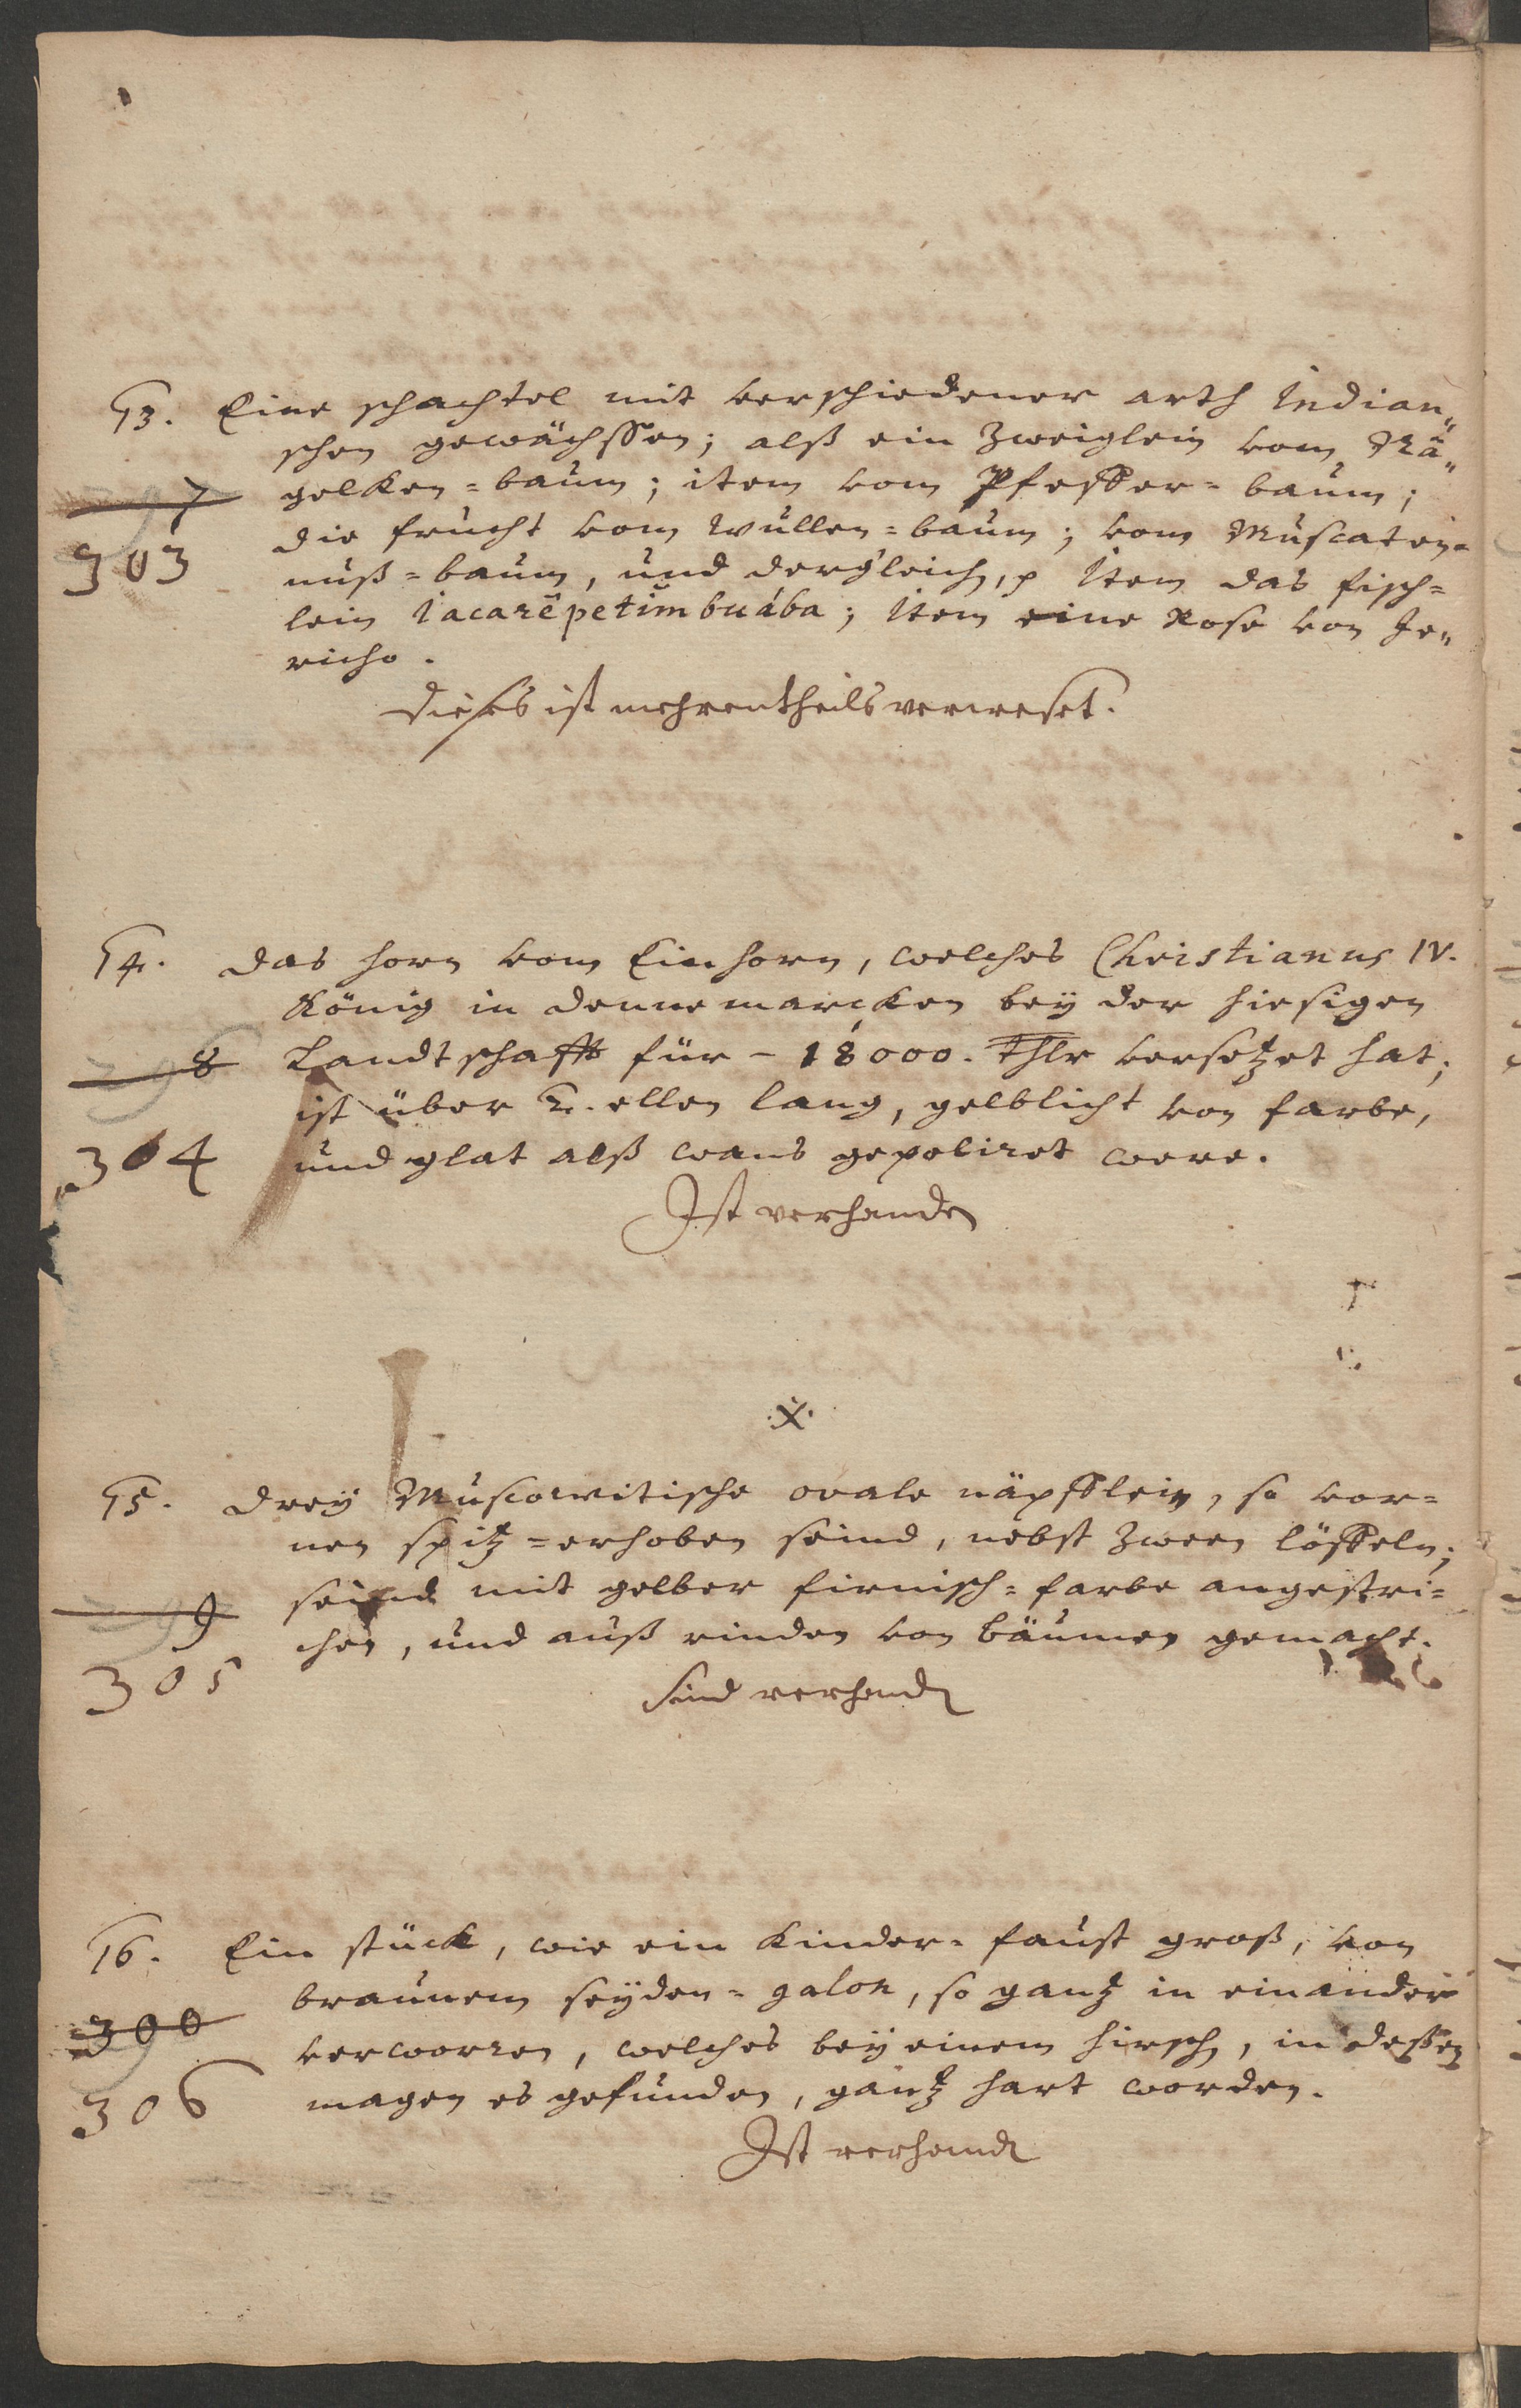 13. Eine schachtel mit verschiedener arth Indian„
schen gewächssen; alß ein Zweiglein vom Nä„
7 gelken=baum; item vom Pfeffer=baum;
303 die frucht vom wullen=baum; vom Muscaten=
nuß=baum, und dergleich, p Item das fisch=
lein Iacarêpetimbuába; Item eine Rose von Je„
richo.
Dieses ist mehrentheils verweset.
14. Das horn vom Einhorn, welches Christianus IV.
König in Dennemarcken bey der hiesigen
8 Landtschafft für – 18000. Thlr versetzet hat;
ist über 2. ellen lang, gelblicht von farbe,
304 und glat alß wans gepoliret were.
Ist verhanden
.X.
15. Drey Muscowitische ovale näpfflein, so vor=
nen spitz=erhoben seind, nebst zween löffeln;
9 seind mit gelber firnisch=farbe angestri=
chen, und auß rinden von bäumen gemacht.
305
Sind verhanden
16. Ein stück, wie ein Kinder=faust groß, von
braunem seyden=galon, so gantz in einander
300 verworren, welches bey einem hirsch, in deßen
306 magen es gefunden, gantz hart worden.
Ist verhanden